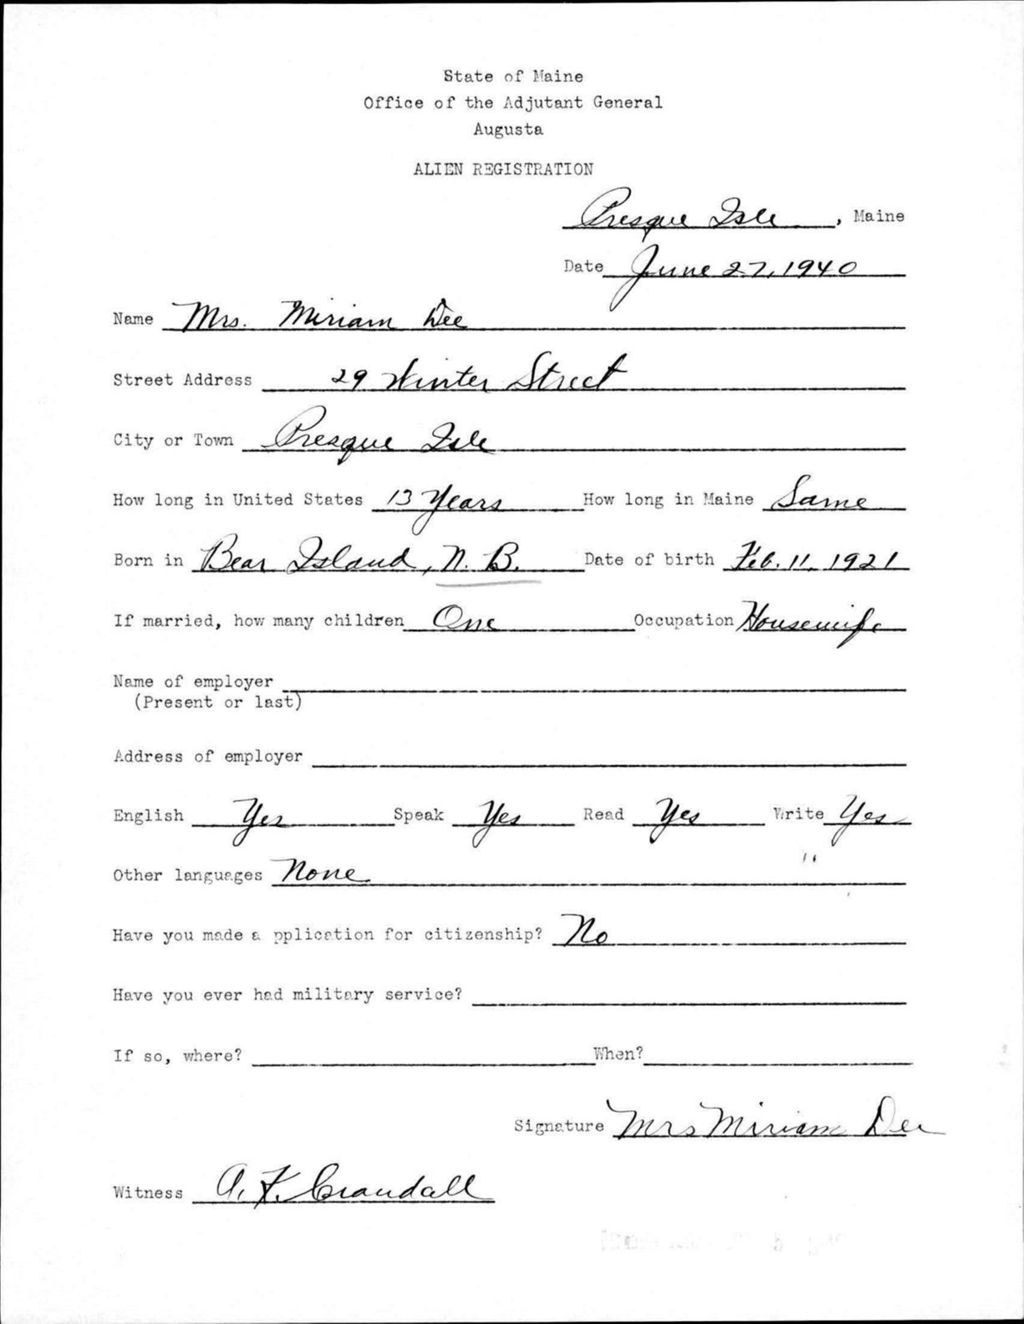 State of Maine
Office of the Adjutant General
Augusta
ALIEN REGISTRATION
Presque Isle, Maine
Date June 27, 1940
Name Mrs. Miriam Dee
Street Address 29 Winter Street
City or Town Presque Isle
How long in United States 13 Years How long in Maine Same
Born in Bear Island, N. B. Date of birth Feb. 11, 1921
If married, how many children One Occupation Housewife
Name of employer
(Present or last)
Address of employer
English Yes Speak Yes Read Yes Write Yes
Other languages None
Have you made a pplication for citizenship? No
Have you ever had military service?
If so, where? When?
Signature Mrs Miriam Dee
Witness A. F. Crandall